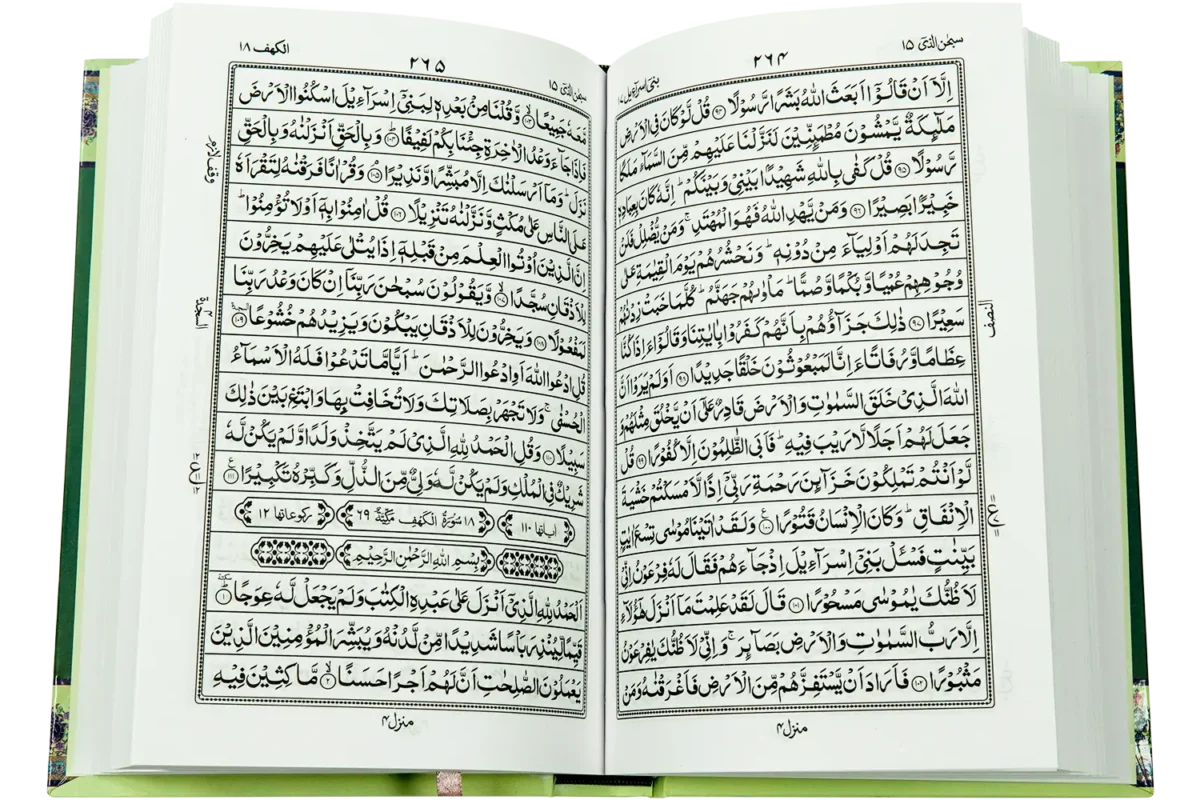 سبحن الذی ۱۵
۲۶۴
بنی اسرآءیل ۱۷
اِلَّاۤ اَنۡ قَالُوۡۤا اَبَعَثَ اللّٰهُ بَشَرًا رَّسُوۡلًا ﴿۹۴﴾ قُلۡ لَّوۡ كَانَ فِی الۡاَرۡضِ
مَلٰٓئِكَةٌ یَّمۡشُوۡنَ مُطۡمَئِنِّیۡنَ لَنَزَّلۡنَا عَلَیۡهِمۡ مِّنَ السَّمَآءِ مَلَكًا
رَّسُوۡلًا ﴿۹۵﴾ قُلۡ كَفٰی بِاللّٰهِ شَهِیۡدًۢا بَیۡنِیۡ وَبَیۡنَكُمۡ ؕ اِنَّهٗ كَانَ بِعِبَادِهٖ
خَبِیۡرًۢا بَصِیۡرًا ﴿۹۶﴾ وَمَنۡ یَّهۡدِ اللّٰهُ فَهُوَ الۡمُهۡتَدِ ۚ وَمَنۡ یُّضۡلِلۡ فَلَنۡ
تَجِدَ لَهُمۡ اَوۡلِیَآءَ مِنۡ دُوۡنِهٖ ؕ وَنَحۡشُرُهُمۡ یَوۡمَ الۡقِیٰمَةِ عَلٰی
وُجُوۡهِهِمۡ عُمۡیًا وَّبُكۡمًا وَّصُمًّا ؕ مَاۡوٰىهُمۡ جَهَنَّمُ ؕ كُلَّمَا خَبَتۡ زِدۡنٰهُمۡ
سَعِیۡرًا ﴿۹۷﴾ ذٰلِكَ جَزَآؤُهُمۡ بِاَنَّهُمۡ كَفَرُوۡا بِاٰیٰتِنَا وَقَالُوۡۤا ءَاِذَا كُنَّا
عِظَامًا وَّرُفَاتًا ءَاِنَّا لَمَبۡعُوۡثُوۡنَ خَلۡقًا جَدِیۡدًا ﴿۹۸﴾ اَوَلَمۡ یَرَوۡا اَنَّ
اللّٰهَ الَّذِیۡ خَلَقَ السَّمٰوٰتِ وَالۡاَرۡضَ قَادِرٌ عَلٰۤی اَنۡ یَّخۡلُقَ مِثۡلَهُمۡ وَ
جَعَلَ لَهُمۡ اَجَلًا لَّا رَیۡبَ فِیۡهِ ؕ فَاَبَی الظّٰلِمُوۡنَ اِلَّا كُفُوۡرًا ﴿۹۹﴾ قُلۡ
لَّوۡ اَنۡتُمۡ تَمۡلِكُوۡنَ خَزَآئِنَ رَحۡمَةِ رَبِّیۡۤ اِذًا لَّاَمۡسَكۡتُمۡ خَشۡیَةَ
الۡاِنۡفَاقِ ؕ وَكَانَ الۡاِنۡسَانُ قَتُوۡرًا ﴿۱۰۰﴾ وَلَقَدۡ اٰتَیۡنَا مُوۡسٰی تِسۡعَ اٰیٰتٍۭ
بَیِّنٰتٍ فَسۡـَٔلۡ بَنِیۡۤ اِسۡرَآءِیۡلَ اِذۡ جَآءَهُمۡ فَقَالَ لَهٗ فِرۡعَوۡنُ اِنِّیۡ
لَاَظُنُّكَ یٰمُوۡسٰی مَسۡحُوۡرًا ﴿۱۰۱﴾ قَالَ لَقَدۡ عَلِمۡتَ مَاۤ اَنۡزَلَ هٰۤؤُلَآءِ
اِلَّا رَبُّ السَّمٰوٰتِ وَالۡاَرۡضِ بَصَآئِرَ ۚ وَاِنِّیۡ لَاَظُنُّكَ یٰفِرۡعَوۡنُ
مَثۡبُوۡرًا ﴿۱۰۲﴾ فَاَرَادَ اَنۡ یَّسۡتَفِزَّهُمۡ مِّنَ الۡاَرۡضِ فَاَغۡرَقۡنٰهُ وَمَنۡ
النصف
ع
۱۱
۱۱
منزل ۴
الكهف ۱۸
۲۶۵
سبحن الذی ۱۵
مَّعَهٗ جَمِیۡعًا ﴿۱۰۳﴾ وَّقُلۡنَا مِنۡۢ بَعۡدِهٖ لِبَنِیۡۤ اِسۡرَآءِیۡلَ اسۡكُنُوا الۡاَرۡضَ
فَاِذَا جَآءَ وَعۡدُ الۡاٰخِرَةِ جِئۡنَا بِكُمۡ لَفِیۡفًا ﴿۱۰۴﴾ وَبِالۡحَقِّ اَنۡزَلۡنٰهُ وَبِالۡحَقِّ
نَزَلَ ؕ وَمَاۤ اَرۡسَلۡنٰكَ اِلَّا مُبَشِّرًا وَّنَذِیۡرًا ﴿۱۰۵﴾ وَقُرۡاٰنًا فَرَقۡنٰهُ لِتَقۡرَاَهٗ
عَلَی النَّاسِ عَلٰی مُكۡثٍ وَّنَزَّلۡنٰهُ تَنۡزِیۡلًا ﴿۱۰۶﴾ قُلۡ اٰمِنُوۡا بِهٖۤ اَوۡ لَا تُؤۡمِنُوۡا ؕ
اِنَّ الَّذِیۡنَ اُوۡتُوا الۡعِلۡمَ مِنۡ قَبۡلِهٖۤ اِذَا یُتۡلٰی عَلَیۡهِمۡ یَخِرُّوۡنَ
لِلۡاَذۡقَانِ سُجَّدًا ﴿۱۰۷﴾ وَّیَقُوۡلُوۡنَ سُبۡحٰنَ رَبِّنَاۤ اِنۡ كَانَ وَعۡدُ رَبِّنَا
لَمَفۡعُوۡلًا ﴿۱۰۸﴾ وَیَخِرُّوۡنَ لِلۡاَذۡقَانِ یَبۡكُوۡنَ وَیَزِیۡدُهُمۡ خُشُوۡعًا ﴿۱۰۹﴾ السجدة
قُلِ ادۡعُوا اللّٰهَ اَوِ ادۡعُوا الرَّحۡمٰنَ ؕ اَیًّا مَّا تَدۡعُوۡا فَلَهُ الۡاَسۡمَآءُ
الۡحُسۡنٰی ۚ وَلَا تَجۡهَرۡ بِصَلَاتِكَ وَلَا تُخَافِتۡ بِهَا وَابۡتَغِ بَیۡنَ ذٰلِكَ
سَبِیۡلًا ﴿۱۱۰﴾ وَقُلِ الۡحَمۡدُ لِلّٰهِ الَّذِیۡ لَمۡ یَتَّخِذۡ وَلَدًا وَّلَمۡ یَكُنۡ لَّهٗ
شَرِیۡكٌ فِی الۡمُلۡكِ وَلَمۡ یَكُنۡ لَّهٗ وَلِیٌّ مِّنَ الذُّلِّ وَكَبِّرۡهُ تَكۡبِیۡرًا ﴿۱۱۱﴾ ع
اٰیاتها ۱۱۰ ۱۸ سُوۡرَةُ الۡكَهۡفِ مَكِّیَّةٌ ۶۹ ركوعاتها ۱۲
بِسۡمِ اللّٰهِ الرَّحۡمٰنِ الرَّحِیۡمِ
اَلۡحَمۡدُ لِلّٰهِ الَّذِیۡۤ اَنۡزَلَ عَلٰی عَبۡدِهِ الۡكِتٰبَ وَلَمۡ یَجۡعَلۡ لَّهٗ عِوَجًا ﴿۱﴾ سكتة
قَیِّمًا لِّیُنۡذِرَ بَاۡسًا شَدِیۡدًا مِّنۡ لَّدُنۡهُ وَیُبَشِّرَ الۡمُؤۡمِنِیۡنَ الَّذِیۡنَ
یَعۡمَلُوۡنَ الصّٰلِحٰتِ اَنَّ لَهُمۡ اَجۡرًا حَسَنًا ﴿۲﴾ مَّاكِثِیۡنَ فِیۡهِ
وقف لازم
السجدة
۱۲
ع
۱۱
۱۲
منزل ۴